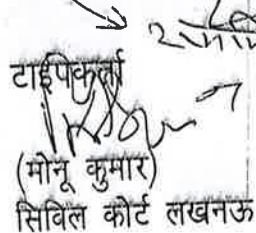 टाईपिकर्ता
(मोनू कुमार)
सिविल कोर्ट लखनऊ